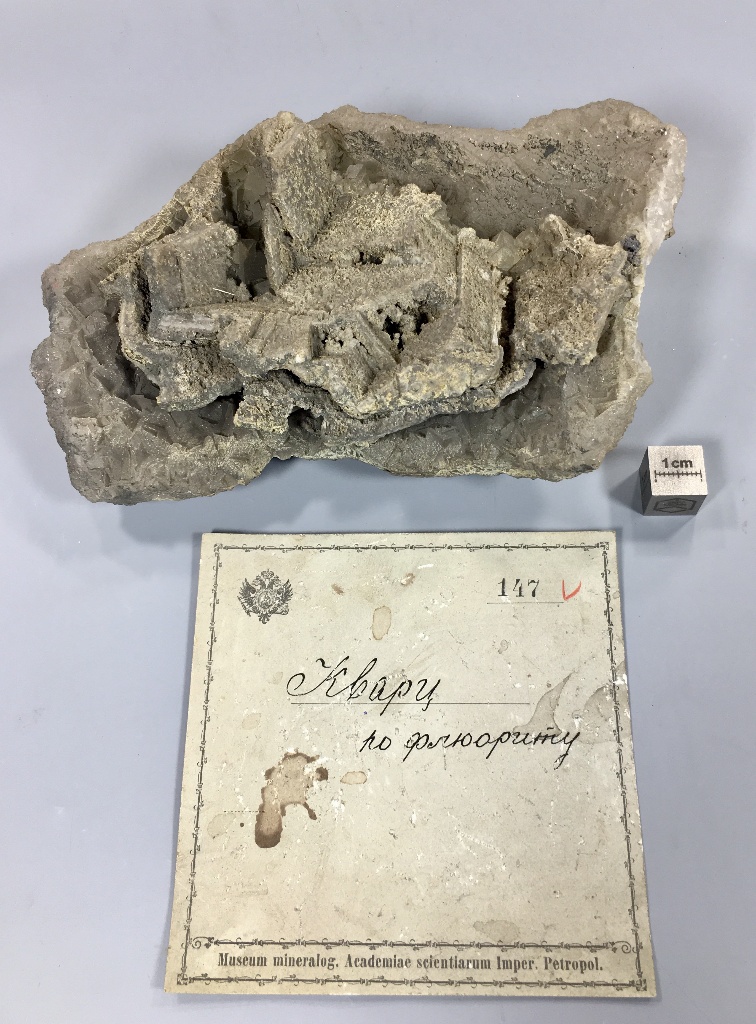 1 cm
147 V
Кварц
по флюориту
Museum mineralog. Academiae scientiarum Imper. Petropol.